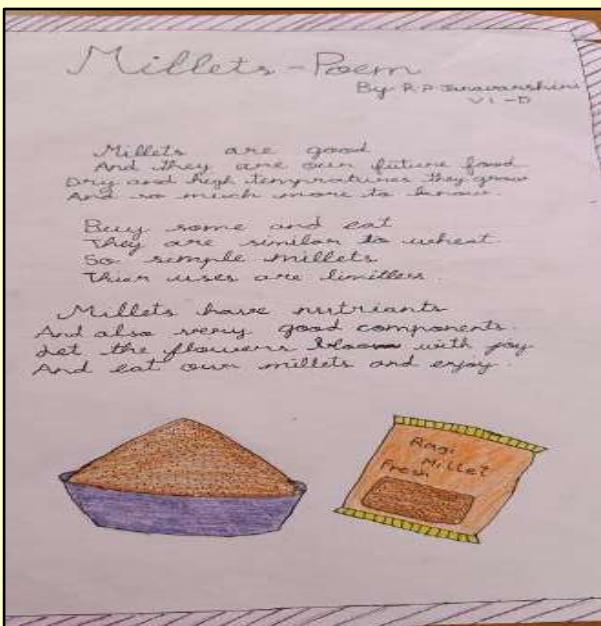 Millets - Poem
By R.P. Janavarshini
VI - D
Millets are good
And they are our future food
Dry and high tempratures they grow
And so much more to know.
Buy some and eat
They are similar to wheat
So simple millets
Thier uses are limitless.
Millets have nutriants
And also very good components.
Let the flowers bloom with joy
And eat our millets and enjoy.
Ragi
Millet
Fresh